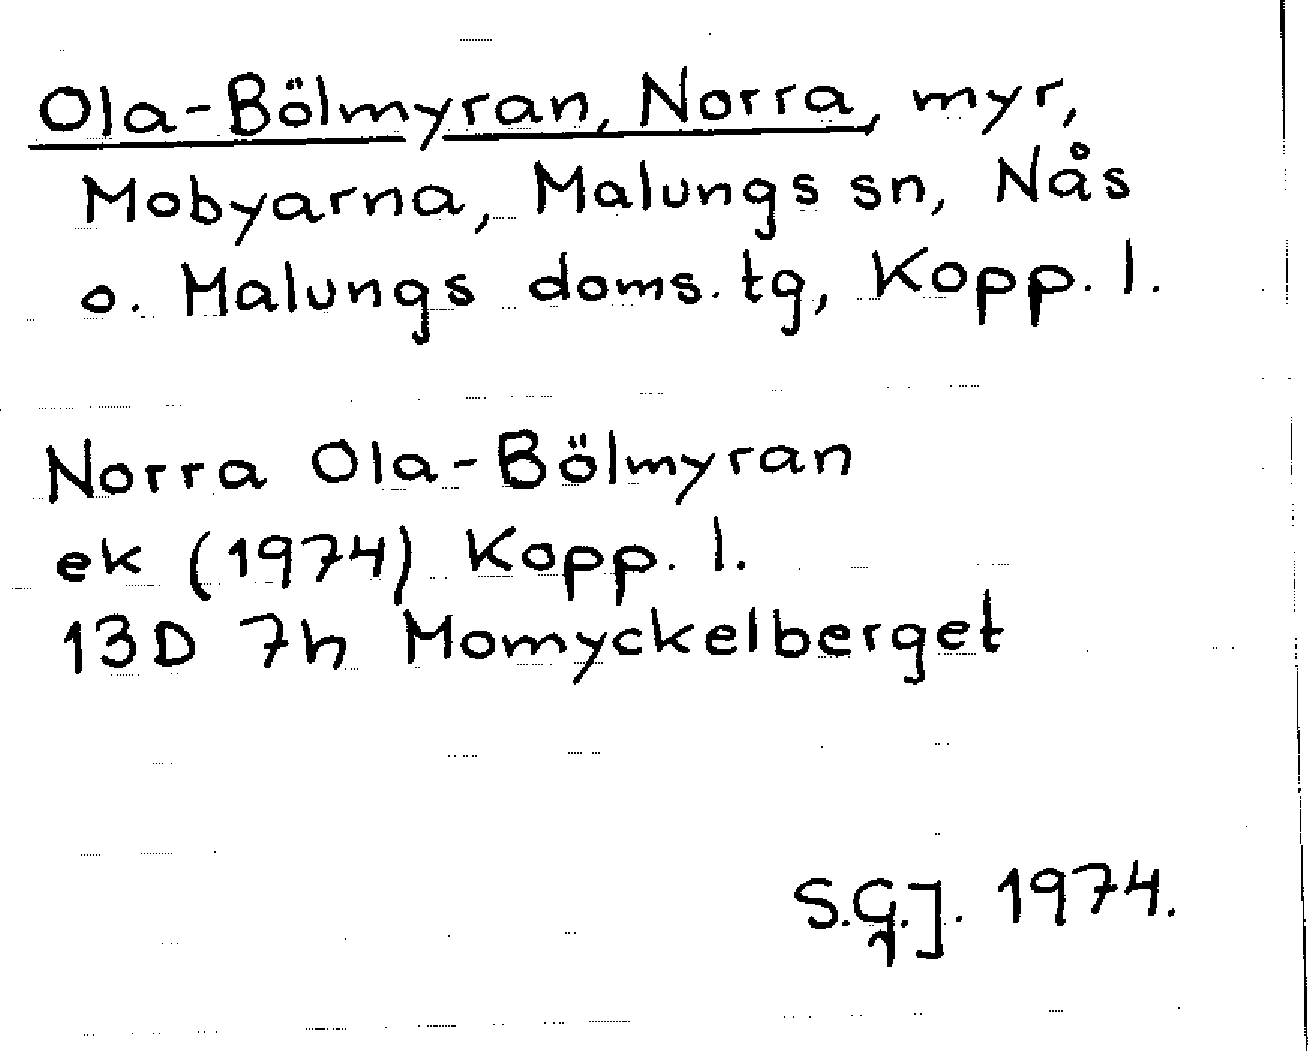 Ola-Bölmyran, Norra, myr,
Mobyarna, Malungs sn, Nås
o. Malungs doms. tg, Kopp. l.
Norra Ola-Bölmyran
ek (1974) Kopp. l.
13D 7h Momyckelberget
S.G.J. 1974.